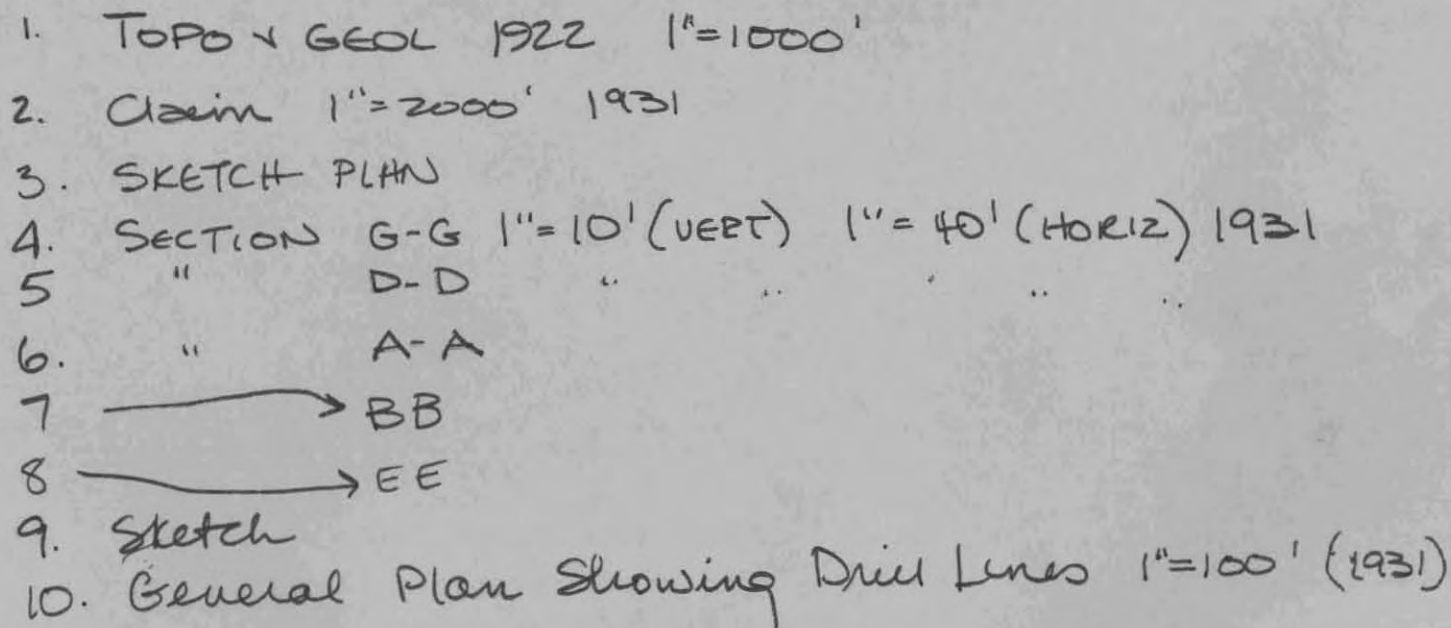 1. TOPO & GEOL 1922 1"=1000'
2. Claim 1"=2000' 1931
3. SKETCH PLAN
4. SECTION G-G 1"=10' (VERT) 1"=40' (HORIZ) 1931
5 " D-D " " " " "
6. " A-A
7 → BB
8 → EE
9. Sketch
10. General Plan Showing Drill Lines 1"=100' (1931)